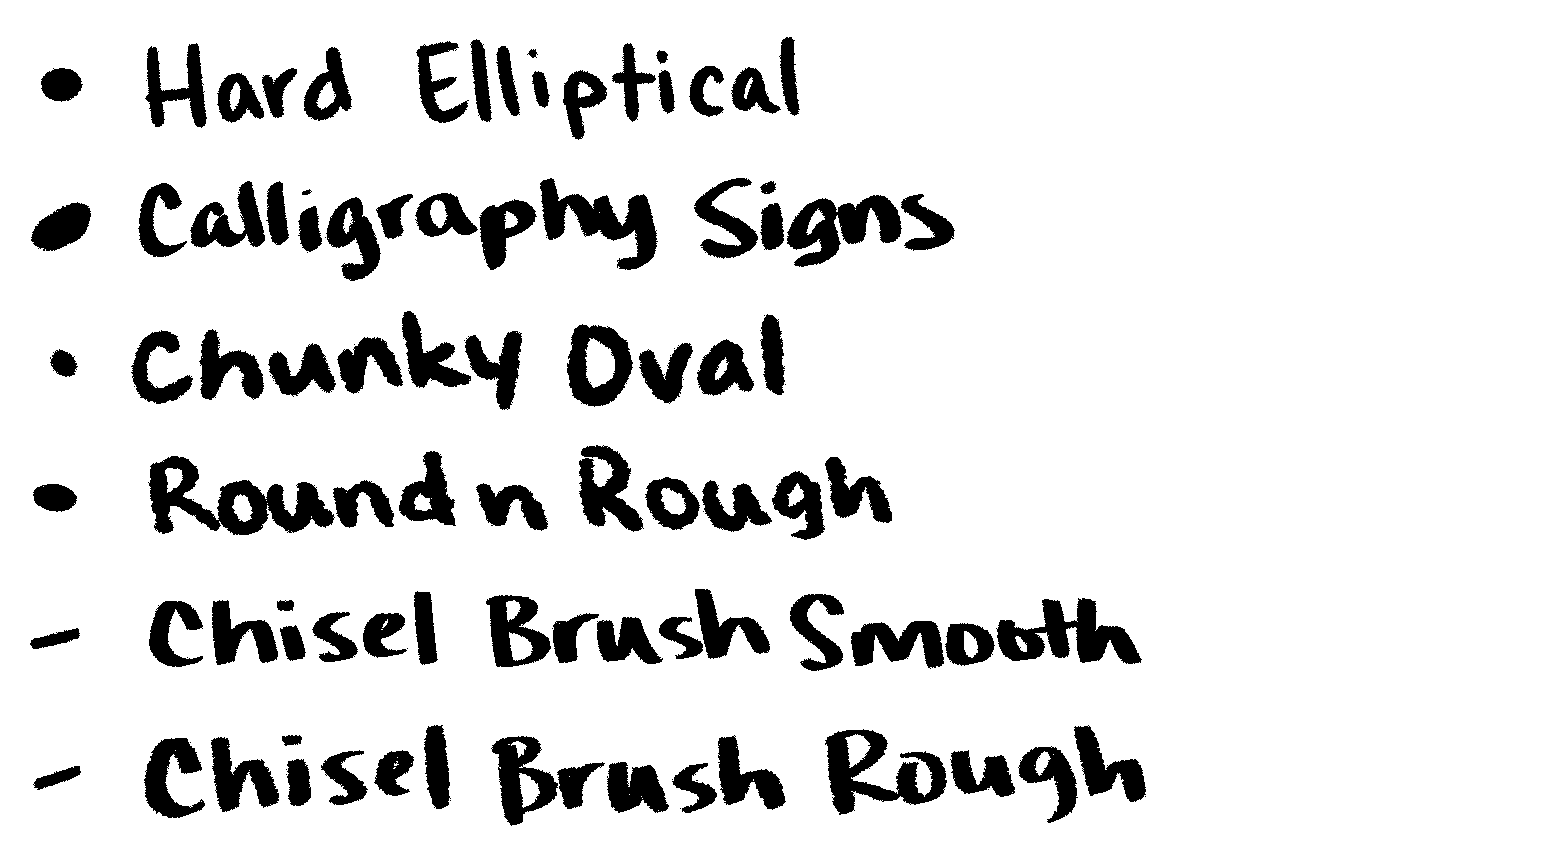 Hard Elliptical
Calligraphy Signs
Chunky Oval
Round n Rough
Chisel Brush Smooth
Chisel Brush Rough